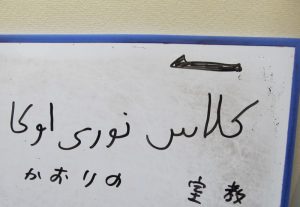 کلاس نوری اوکا
かおりの 室教